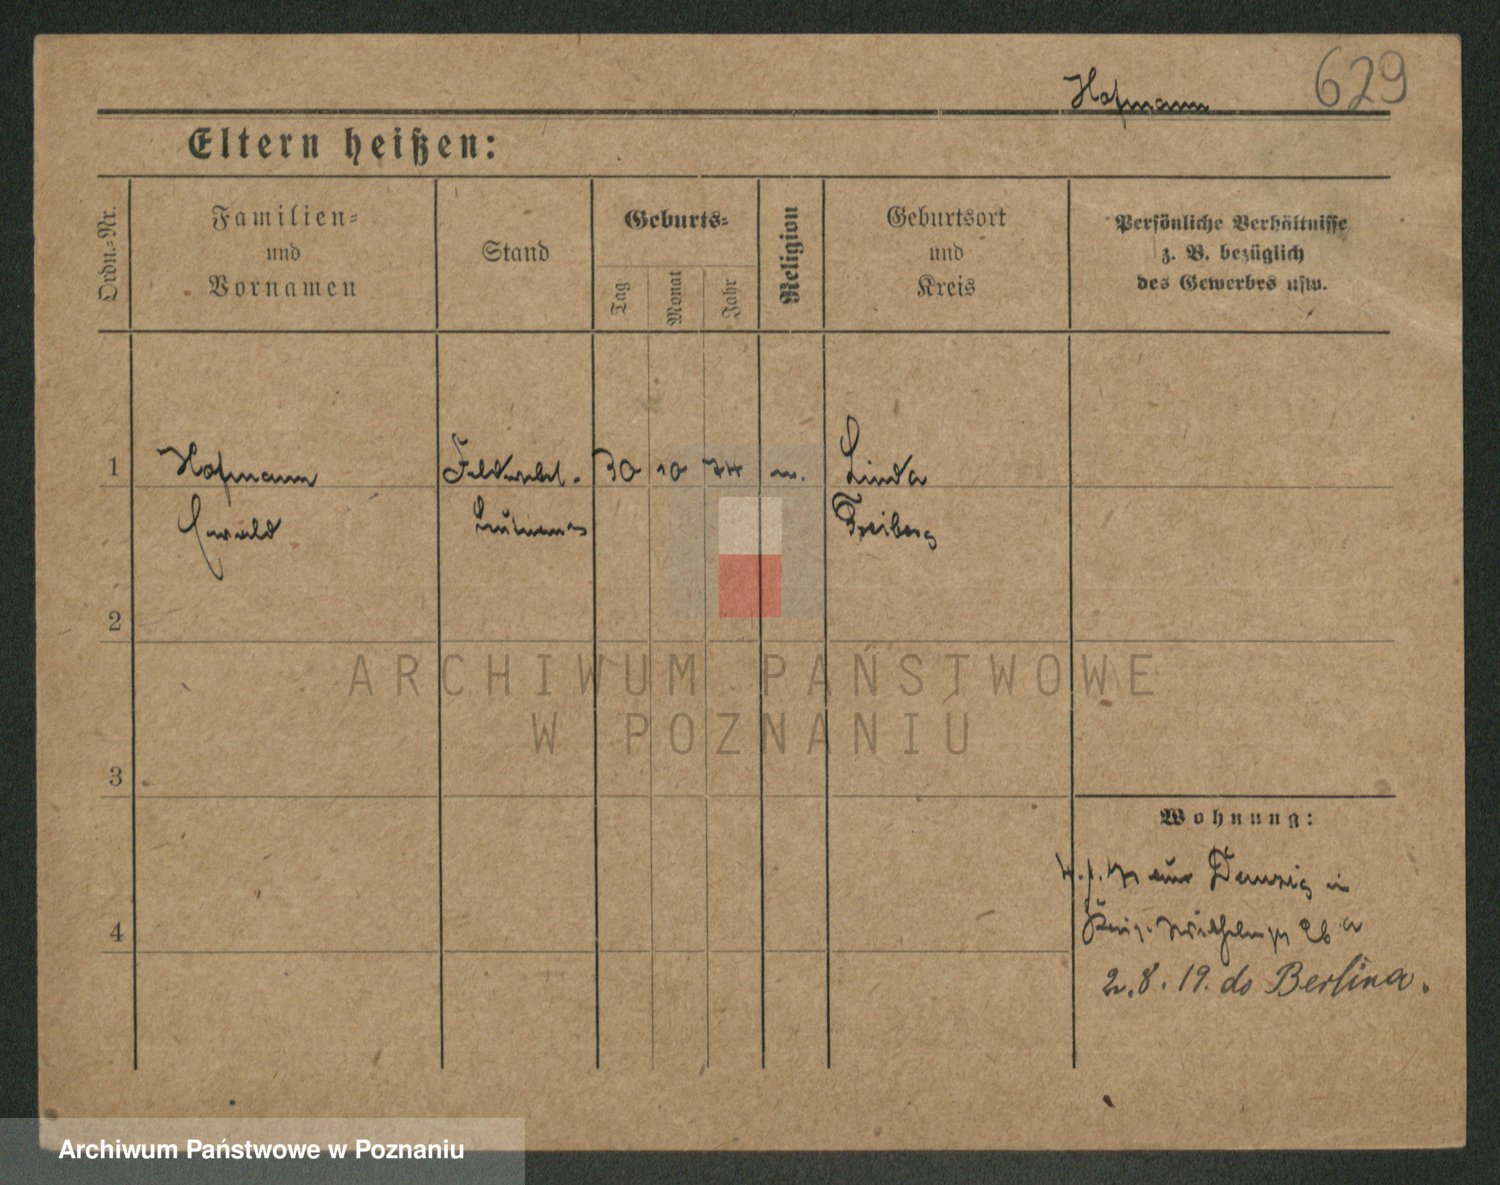 Hofmann 629
Eltern heißen:
Ordn.-Nr.
Familien-
und
Vornamen
Stand
Geburts-
Tag
Monat
Jahr
Religion
Geburtsort
und
Kreis
Persönliche Verhältnisse
z. B. bezüglich
des Gewerbes usw.
1 Hofmann Feldwebel- 30 10 Linda
Ewald Freiberg
2
3
4
Wohnung:
aus Danzig in
Wilhelmstr
2.8.19. do Berlina.
ARCHIWUM PAŃSTWOWE
W POZNANIU
Archiwum Państwowe w Poznaniu